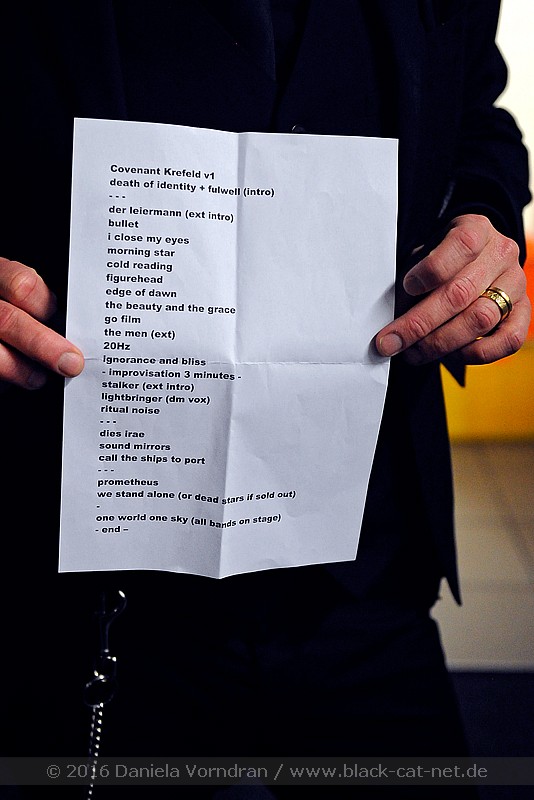 Covenant Krefeld v1
death of identity + fulwell (intro)
- - -
der leiermann (ext intro)
bullet
i close my eyes
morning star
cold reading
figurehead
edge of dawn
the beauty and the grace
go film
the men (ext)
20Hz
ignorance and bliss
- improvisation 3 minutes -
stalker (ext intro)
lightbringer (dm vox)
ritual noise
- - -
dies irae
sound mirrors
call the ships to port
- - -
prometheus
we stand alone (or dead stars if sold out)
-
one world one sky (all bands on stage)
- end –
© 2016 Daniela Vorndran / www.black-cat-net.de